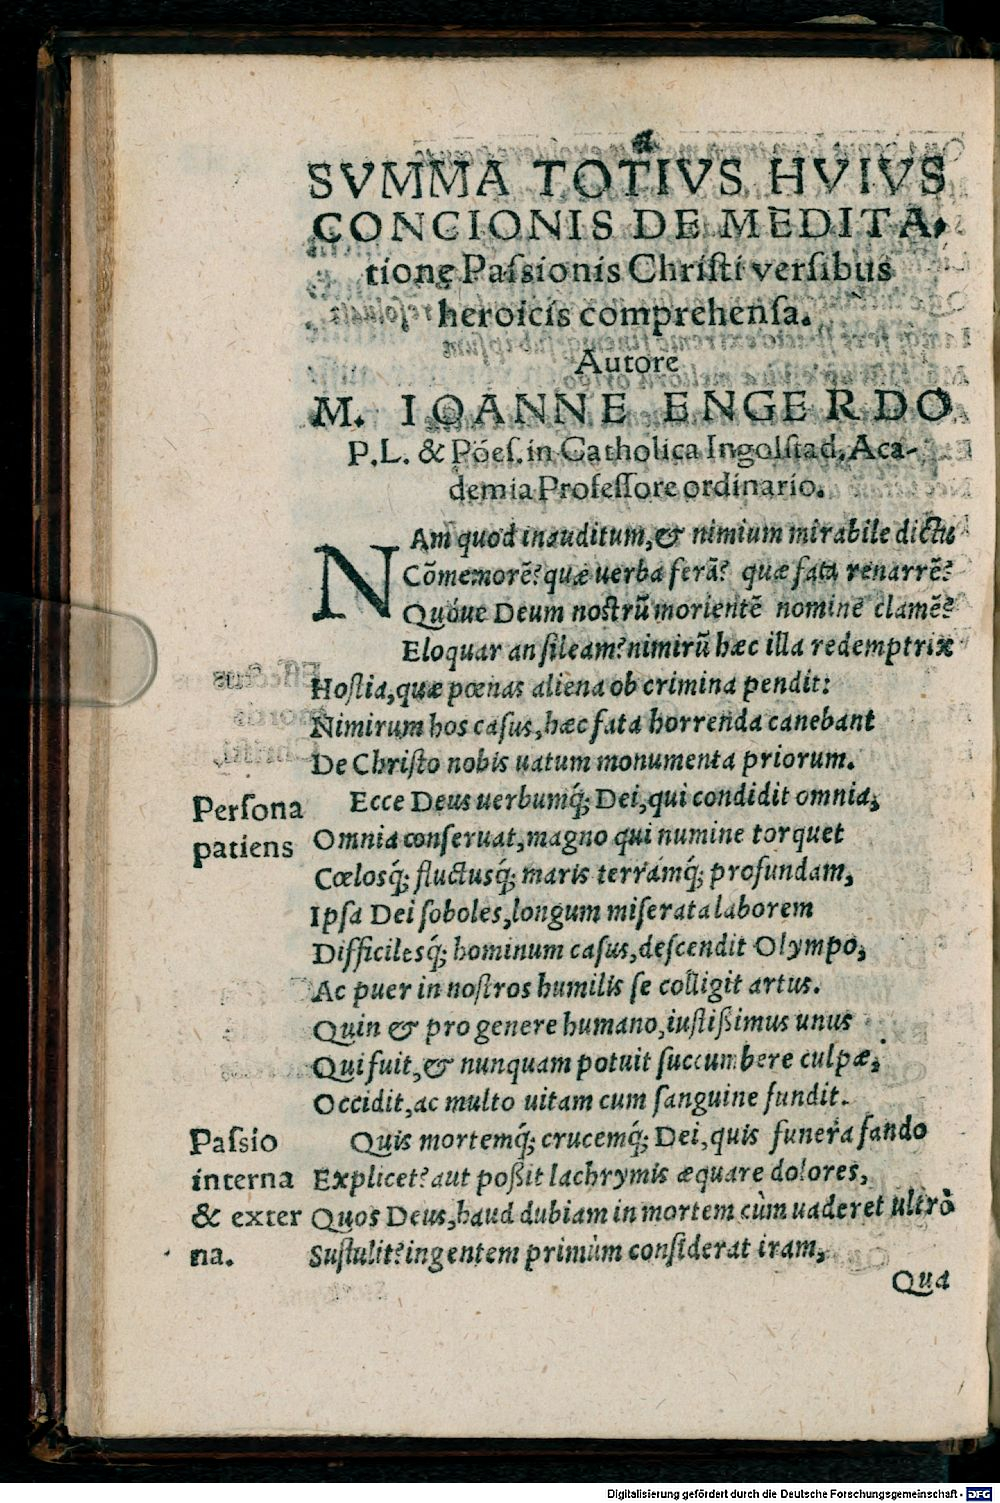 SVMMA TOTIVS HVIVS
CONCIONIS DE MEDITA-
tione Paſsionis Chriſti verſibus
heroicis comprehenſa.
Autore
M. IOANNE ENGERDO
P.L. & Póeſ. in Catholica Ingolſtad. Aca-
demia Profeſſore ordinario.
NAm quod inauditum, & nimium mirabile dictu
Cōmemorē? quæ uerba ferā? quæ fata renarrē?
Quóue Deum noſtrū morientē nomine clamē?
Eloquar an ſileam? nimirū hæc illa redemptrix
Hoſtia, quæ pœnas aliena ob crimina pendit:
Nimirum hos caſus, hæc fata horrenda canebant
De Chriſto nobis uatum monumenta priorum.
Perſona
patiens
Ecce Deus uerbumq́; Dei, qui condidit omnia,
Omnia conſeruat, magno qui numine torquet
Cœlosq́; fluctusq́; maris terrámq́; profundam,
Ipſa Dei ſoboles, longum miſerata laborem
Difficilesq́; hominum caſus, deſcendit Olympo,
Ac puer in noſtros humilis ſe colligit artus.
Quin & pro genere humano, iuſtißimus unus
Qui fuit, & nunquam potuit ſuccumbere culpæ,
Occidit, ac multo uitam cum ſanguine fundit.
Paſsio
interna
& exter
na.
Quis mortemq́; crucemq́; Dei, quis funera fando
Explicet? aut poßit lachrymis æquare dolores,
Quos Deus, haud dubiam in mortem cùm uaderet ultrò
Suſtulit? ingentem primùm conſiderat iram,
Qua
Digitalisierung gefördert durch die Deutsche Forschungsgemeinschaft - DFG